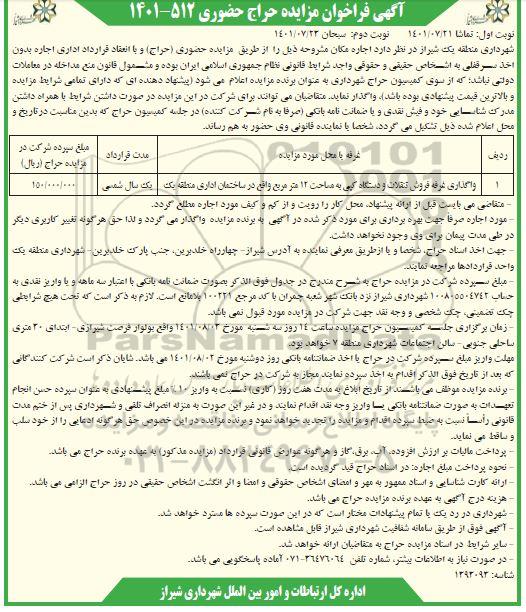 آگهی فراخوان مزایده حراج حضوری ۵۱۲-۱۴۰۱
نوبت اول: تماشا ۱۴۰۱/۰۷/۲۱ نوبت دوم: سبحان ۱۴۰۱/۰۷/۲۳
شهرداری منطقه یک شیراز در نظر دارد اجاره مکان مشروحه ذیل را از طریق مزایده حضوری (حراج) و با انعقاد قرارداد اداری اجاره بدون
اخذ سرقفلی به اشخاص حقیقی و حقوقی واجد شرایط قانونی نظام جمهوری اسلامی ایران بوده و مشمول قانون منع مداخله در معاملات
دولتی نباشد؛ که از سوی کمیسیون حراج شهرداری به عنوان برنده مزایده اعلام می شود (پیشنهاد دهنده ای که دارای تمامی شرایط مزایده
و بالاترین قیمت پیشنهادی بوده باشد)، واگذار نماید. متقاضیان می توانند برای شرکت در این مزایده در صورت داشتن شرایط با همراه داشتن
مدرک شناسایی خود و فیش نقدی و یا ضمانت نامه بانکی (صرفا به نام شرکت کننده) در جلسه کمیسیون حراج که بدین مناسبت در تاریخ و
محل اعلام شده ذیل تشکیل می گردد، شخصا یا نماینده قانونی وی حضور به هم رساند.
ردیف غرفه یا محل مورد مزایده مدت قرارداد مبلغ سپرده شرکت در مزایده حراج (ریال)
۱ واگذاری غرفه فروش تنقلات و دستگاه کپی به مساحت ۱۲ متر مربع واقع در ساختمان اداری منطقه یک یک سال شمسی ۱۵۰/۰۰۰/۰۰۰
- متقاضی می بایست قبل از ارائه پیشنهاد، محل کار را رویت و از کم و کیف مورد اجاره مطلع گردد.
- مورد اجاره صرفاً جهت بهره برداری برای مورد ذکر شده در آگهی به برنده مزایده واگذار می گردد و لذا حق هرگونه تغییر کاربری دیگر
در طی مدت پیمان برای وی وجود نخواهد داشت.
- جهت اخذ اسناد حراج، شخصا و یا از طریق معرفی نماینده به آدرس شیراز- چهارراه خلدبرین، جنب پارک خلدبرین- شهرداری منطقه یک
واحد قراردادها مراجعه نمایند.
- مبلغ سپرده شرکت در مزایده حراج به شرح مندرج در جدول فوق الذکر بصورت ضمانت نامه بانکی با اعتبار سه ماهه و یا واریز نقدی به
حساب ۱۰۰۸۰۵۵۰۴۷۴۲ شهرداری شیراز نزد بانک شهر شعبه چمران با کد مرجع ۱۰۰۲۲۱ بلامانع است. لازم به ذکر است که تحت هیچ شرایطی
چک تضمینی، چک شخصی و وجه نقد جهت شرکت در مزایده مورد قبول نمی باشد.
- زمان برگزاری جلسه کمیسیون حراج مزایده ساعت ۱۴ روز سه شنبه مورخ ۱۴۰۱/۰۸/۰۳ واقع بولوار فرصت شیرازی- ابتدای ۲۰ متری
ساحلی جنوبی- سالن اجتماعات شهرداری منطقه ۷ خواهد بود.
مهلت واریز مبلغ سپرده شرکت در حراج یا اخذ ضمانتنامه بانکی روز دوشنبه مورخ ۱۴۰۱/۰۸/۰۲ می باشد. شایان ذکر است شرکت کنندگانی
که بعد از تاریخ فوق الذکر اقدام به اخذ سپرده نمایند مجاز به شرکت در حراج نمی باشند.
- برنده مزایده موظف می باشند از تاریخ ابلاغ به مدت هفت روز (کاری) نسبت به واریز ۱۰٪ مبلغ پیشنهادی به عنوان سپرده حسن انجام
تعهدات به صورت ضمانتنامه بانکی یا واریز وجه نقد اقدام نمایند و در غیر این صورت به منزله انصراف تلقی و شهرداری پس از ختم مدت
قانونی رأساً نسبت به ضبط سپرده اقدام و مزایده را تجدید خواهد نمود و برنده مزایده در این خصوص حق هرگونه ادعایی را از خود سلب
و ساقط می نماید.
- پرداخت مالیات بر ارزش افزوده، آب، برق، گاز و هرگونه عوارض قانونی قرارداد (مزایده مذکور) به عهده برنده حراج می باشد.
- نحوه پرداخت مبلغ اجاره: در اسناد حراج قید گردیده است.
- ارائه کارت شناسایی و اسناد ممهور به مهر و امضای اشخاص حقوقی و امضا و اثر انگشت اشخاص حقیقی در روز حراج الزامی می باشد.
- هزینه درج آگهی به عهده برنده مزایده حراج می باشد.
- شهرداری در رد یک یا تمام پیشنهادات مختار است که در این صورت سپرده ها مسترد خواهد شد.
- آگهی فوق از طریق سامانه شفافیت شهرداری شیراز قابل مشاهده است.
- سایر شرایط در اسناد مزایده حراج به متقاضیان ارائه خواهد شد.
- در صورت نیاز به اطلاعات بیشتر، شماره تلفن ۳۶۴۷۶۰۶۴-۰۷۱ آماده پاسخگویی می باشد.
شناسه: ۱۳۹۳۰۹۳
اداره کل ارتباطات و امور بین الملل شهرداری شیراز
ParsNamadData
۰۲۱-۸۸۳۴۹۶۷۰-۵